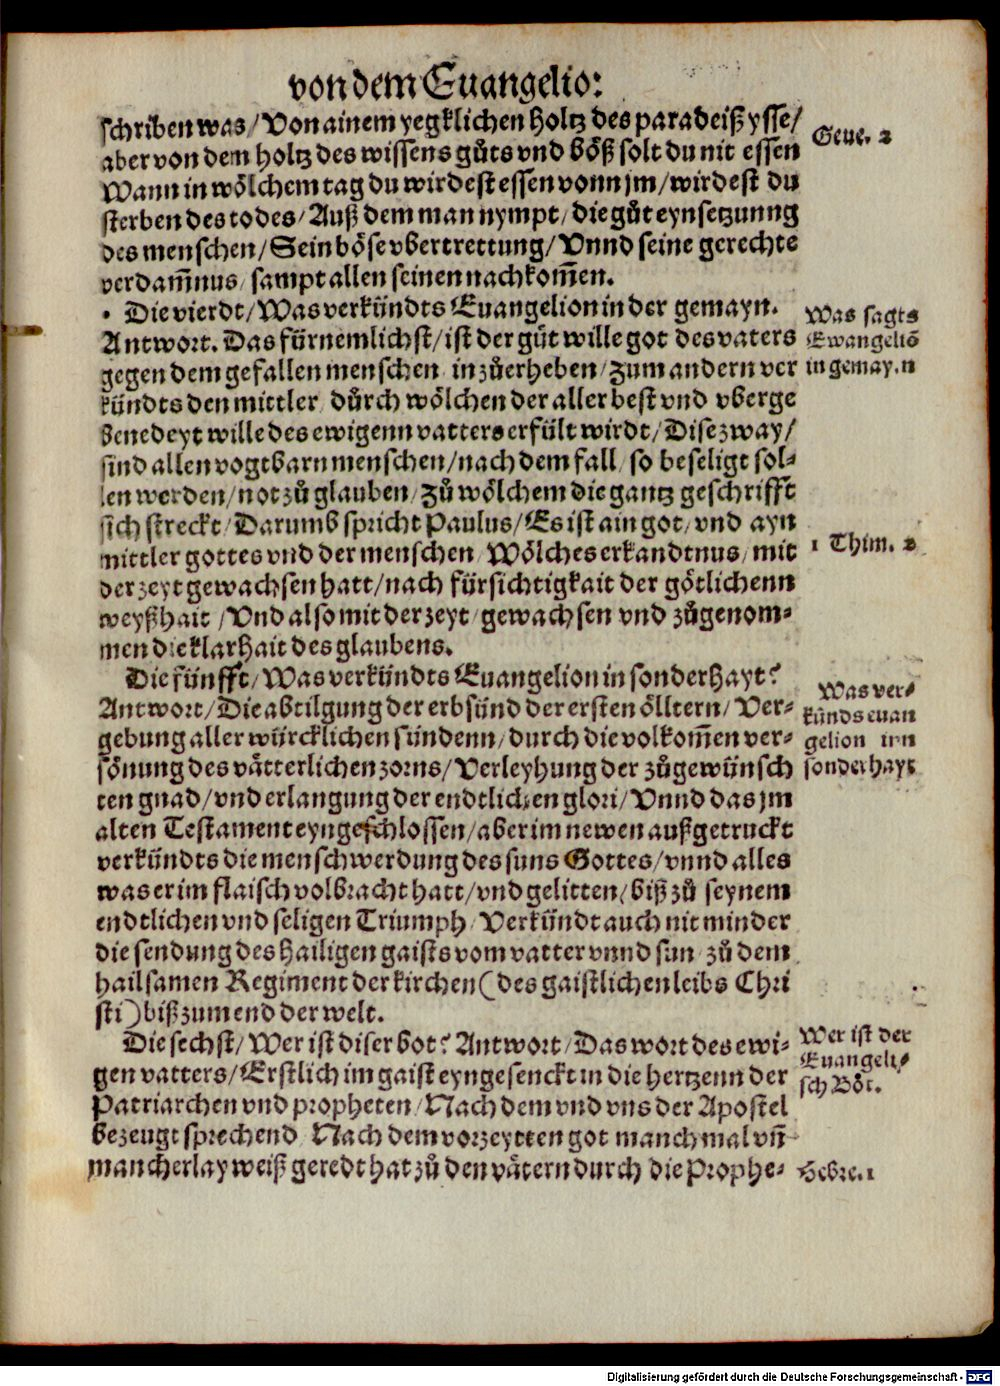 von dem Euangelio:
schriben was / Von ainem yegklichen holtz des paradeiß ysse /
aber von dem holtz des wissens gůts vnd böß solt du nit essen
Wann in wölchem tag du wirdest essen vonn jm / wirdest du
sterben des todes / Auß dem man nympt / die gůt eynsetzunng
des menschen / Sein böse vbertrettung / Vnnd seine gerechte
verdam̃nus / sampt allen seinen nachkom̃en.
Gene. 2
Die vierdt / Was verkündts Euangelion in der gemayn.
Antwort. Das fürnemlichst / ist der gůt wille got des vaters
gegen dem gefallen menschen / in zůerheben / zum andern ver
kündts den mittler / důrch wölchen der aller best vnd vberge
benedeyt wille des ewigenn vatters erfült wirdt / Dise zway /
sind allen vogtbarn menschen / nach dem fall / so beseligt sol-
len werden / not zů glauben / Zů wölchem die gantz geschrifft
sich streckt / Darumb spricht Paulus / Es ist ain got / vnd ayn
mittler gottes vnd der menschen / Wölches erkandtnus / mit
der zeyt gewachsen hatt / nach fürsichtigkait der götlichenn
weyßhait / Vnd also mit der zeyt / gewachsen vnd zůgenom-
men die klarhait des glaubens.
Was sagts
Ewangeliõ
in gemay.n
1 Thim. 2
Die fünfft / Was verkündts Euangelion in sonderhayt?
Antwort / Die abtilgung der erbsünd der ersten ölltern / Ver-
gebung aller würcklichen sündenn / durch die volkom̃en ver-
sönung des vätterlichen zorns / Verleyhung der zůgewünsch
ten gnad / vnd erlangung der endtlichen glori / Vnnd das jm
alten Testament eyngeschlossen / aber im newen außgetruckt
verkündts die menschwerdung des suns Gottes / vnnd alles
was er im flaisch volbracht hatt / vnd gelitten / biß zů seynem
endtlichen vnd seligen Triumph / Verkündt auch nit minder
die sendung des hailigen gaists vom vatter vnnd sun / zů dem
hailsamen Regiment der kirchen (des gaistlichen leibs Chri
sti) biß zum end der welt.
Was ver-
künds euan
gelion inn
sonderhayt
Die sechst / Wer ist diser bot? Antwort / Das wort des ewi-
gen vatters / Erstlich im gaist eyngesenckt in die hertzenn der
Patriarchen vnd propheten / Nach dem vnd vns der Apostel
bezeugt sprechend / Nach dem vorzeytten got manch mal vñ
mancherlay weiß geredt hat zů den vätern durch die Prophe-
Wer ist der
Euangeli-
sch Bot.
Hebre. 1
Digitalisierung gefördert durch die Deutsche Forschungsgemeinschaft - DFG